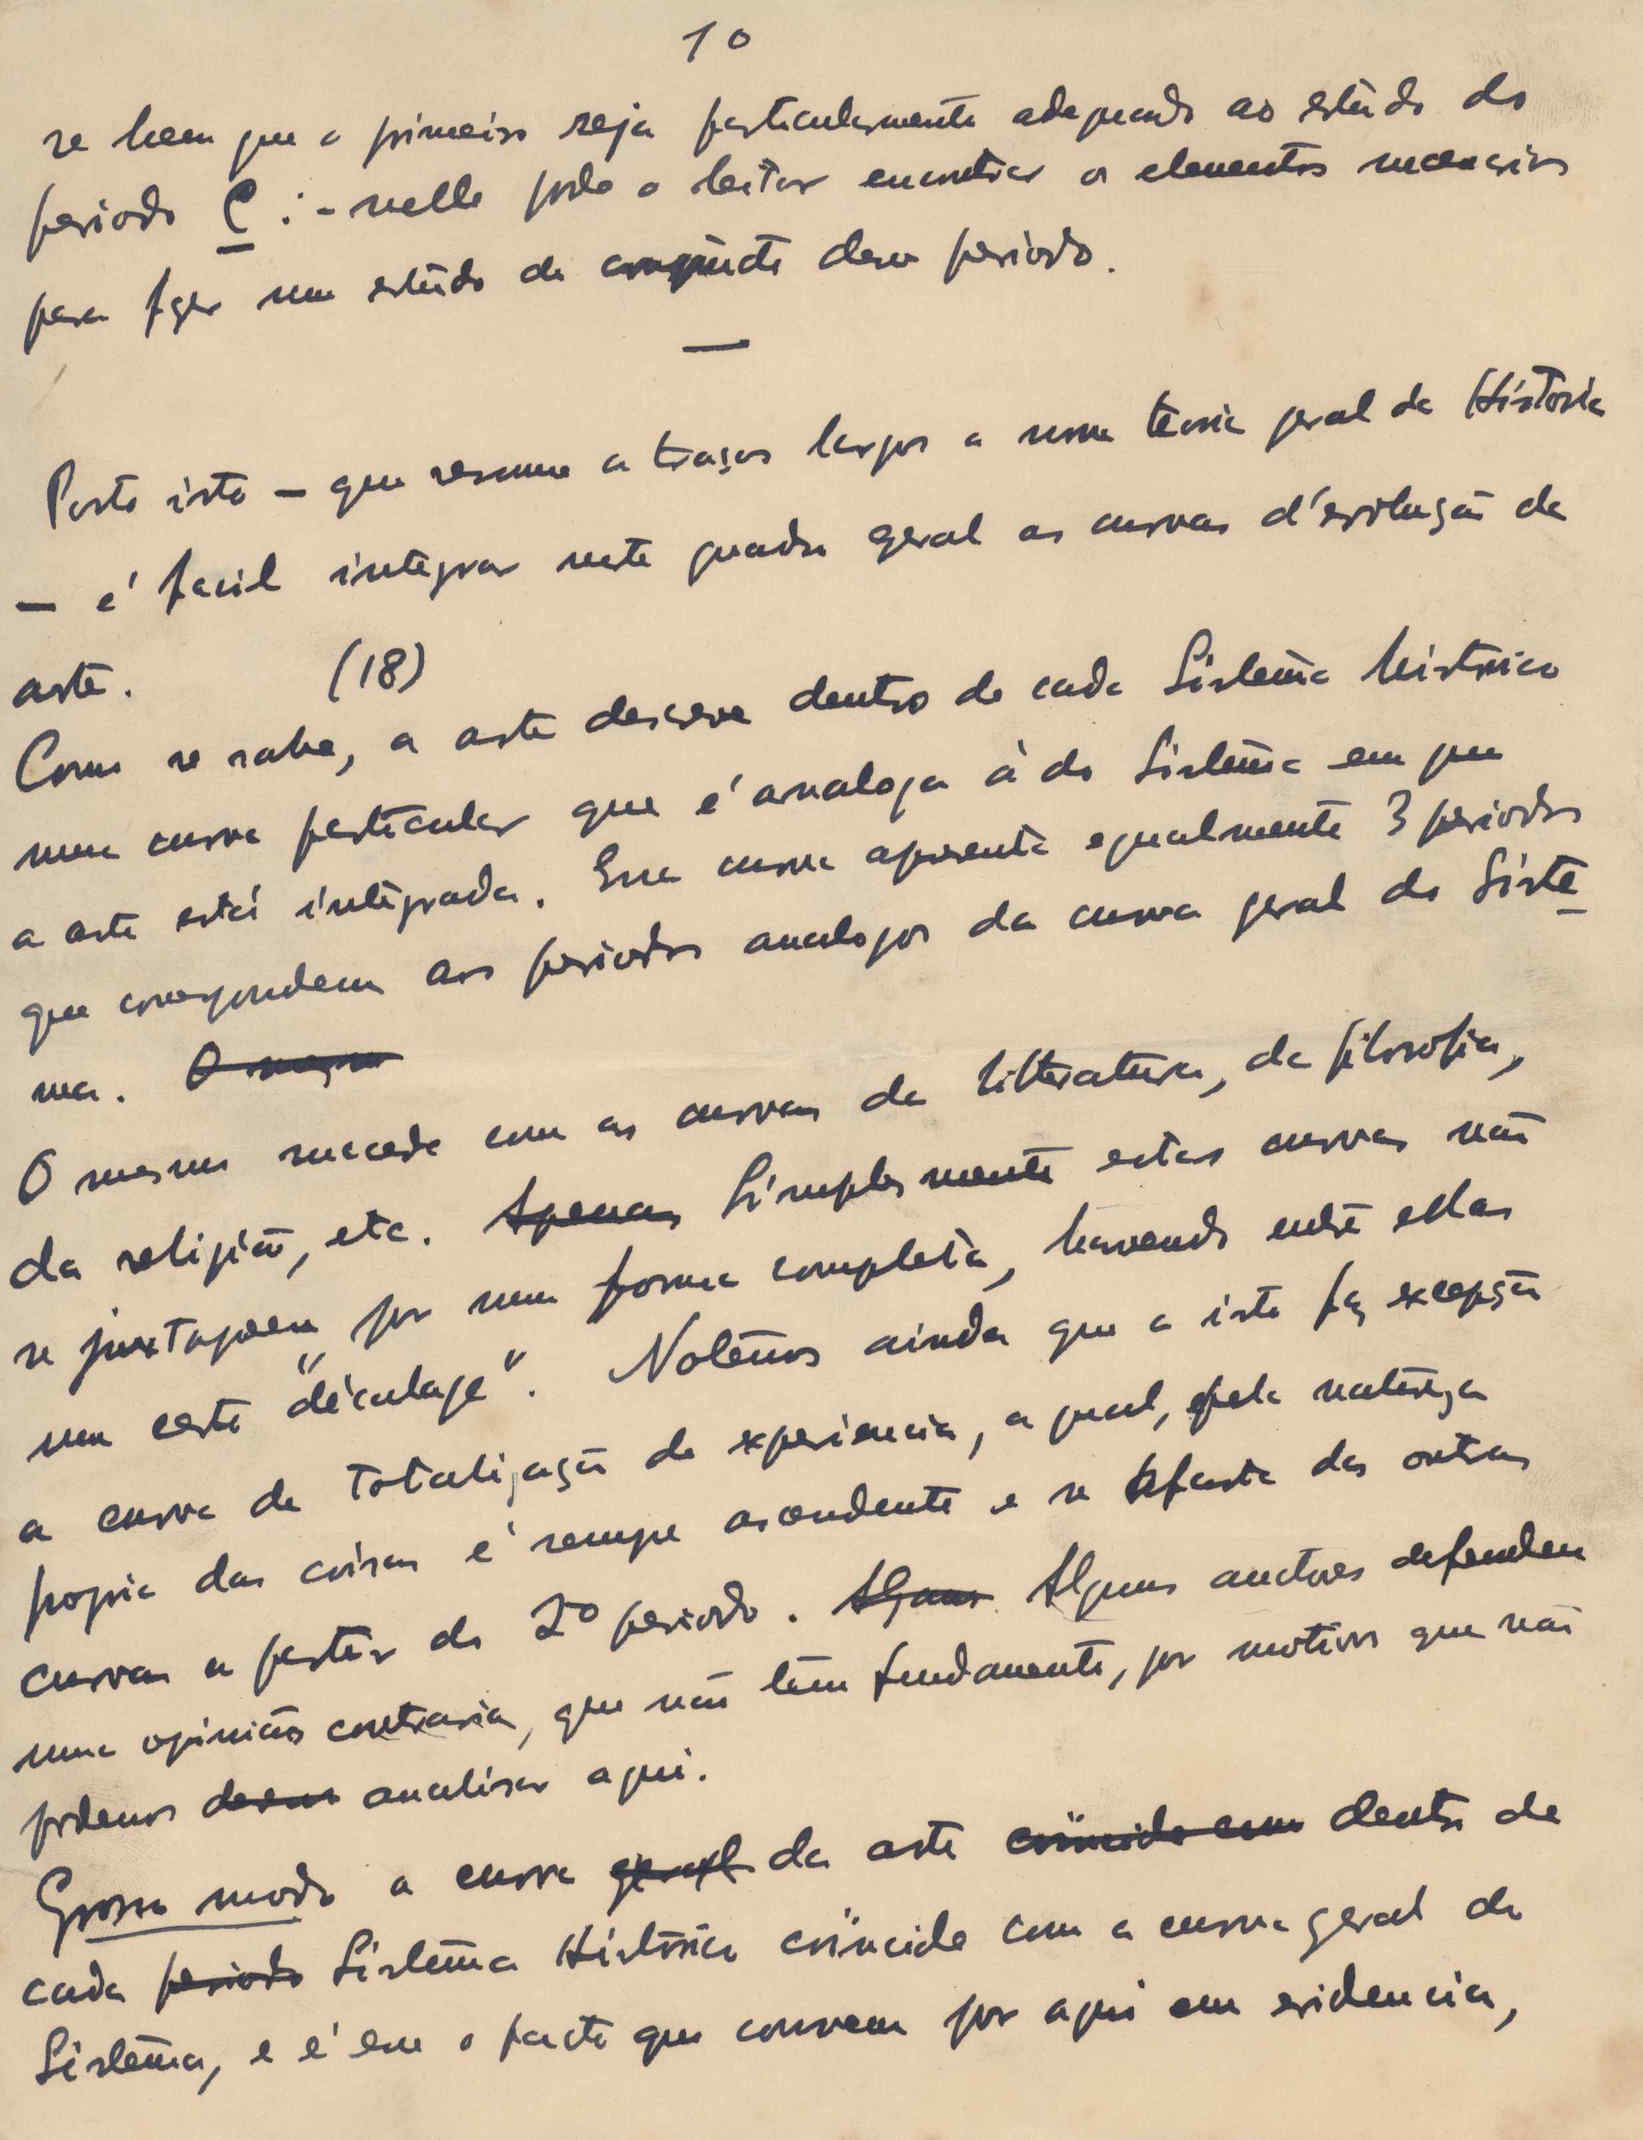 10
se bem que o primeiro seja particularmente adequado ao estudo do
periodo C : - nelle pode o leitor encontrar os elementos necessarios
para fazer um estudo de conjuncto desse periodo.
—
Posto isto — que resume a traços largos a uma teoria geral da Historia
— é facil integrar neste quadro geral as curvas d'evolução da
arte. (18)
Como se sabe, a arte descreve dentro de cada Sistema historico
uma curva particular que é analoga á do Sistema em que
a arte está integrada. Essa curva apresenta egualmente 3 periodos
que correspondem aos periodos analogos da curva geral do Siste
ma. O mesmo
O mesmo succede com as curvas da litteratura, da filosofia,
da religião, etc. Apenas Simplesmente estas curvas não
se juxtapoem por uma forma completa, havendo entre ellas
um certo "décalage". Notemos ainda que a isto faz excepção
a curva da totalização da experiencia, a qual, pela natureza
propria das coisas é sempre ascendente e se afasta das outras
curvas a partir do 2º periodo. Alguns Alguns auctores defendem
uma opinião contraria, que não tem fundamento, por motivos que não
podemos analisar aqui.
Grosso modo a curva geral da arte coïncide com dentro de
cada periodo Sistema Historico coïncide com a curva geral do
Sistema, e é esse o facto que convem pôr aqui em evidencia,